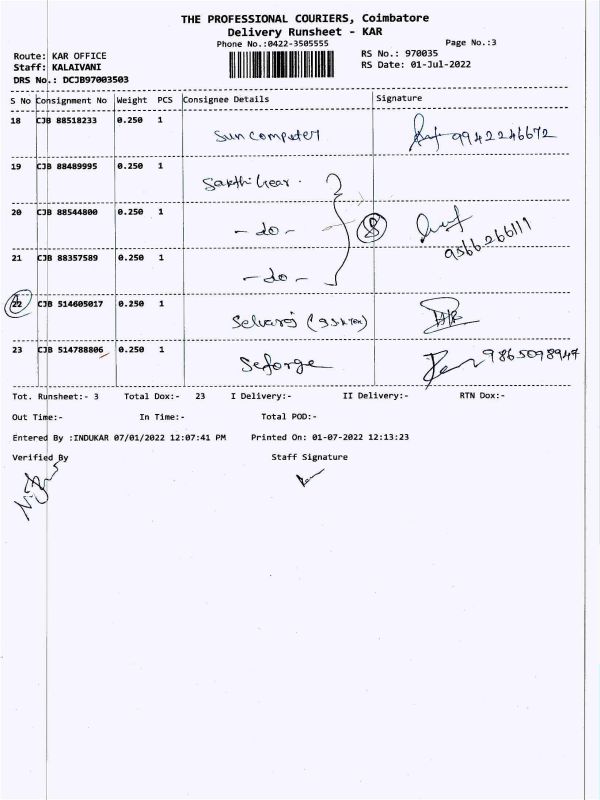 THE PROFESSIONAL COURIERS, Coimbatore
Delivery Runsheet - KAR
Phone No.:0422-3505555
Page No.:3
Route: KAR OFFICE
RS No.: 970035
Staff: KALAIVANI
RS Date: 01-Jul-2022
DRS No.: DCJB97003503
S No Consignment No Weight PCS Consignee Details Signature
18 CJB 88518233 0.250 1
Sun computer 9942246672
19 CJB 88489995 0.250 1
Sakthi Gear.
20 CJB 88544800 0.250 1
- do - 8
9566266111
21 CJB 88357589 0.250 1
- do -
22 CJB 514605017 0.250 1
Selvaraj
23 CJB 514788806 0.250 1
Seforge 9865098949
Tot. Runsheet:- 3 Total Dox:- 23 I Delivery:- II Delivery:- RTN Dox:-
Out Time:- In Time:- Total POD:-
Entered By :INDUKAR 07/01/2022 12:07:41 PM Printed On: 01-07-2022 12:13:23
Verified By Staff Signature